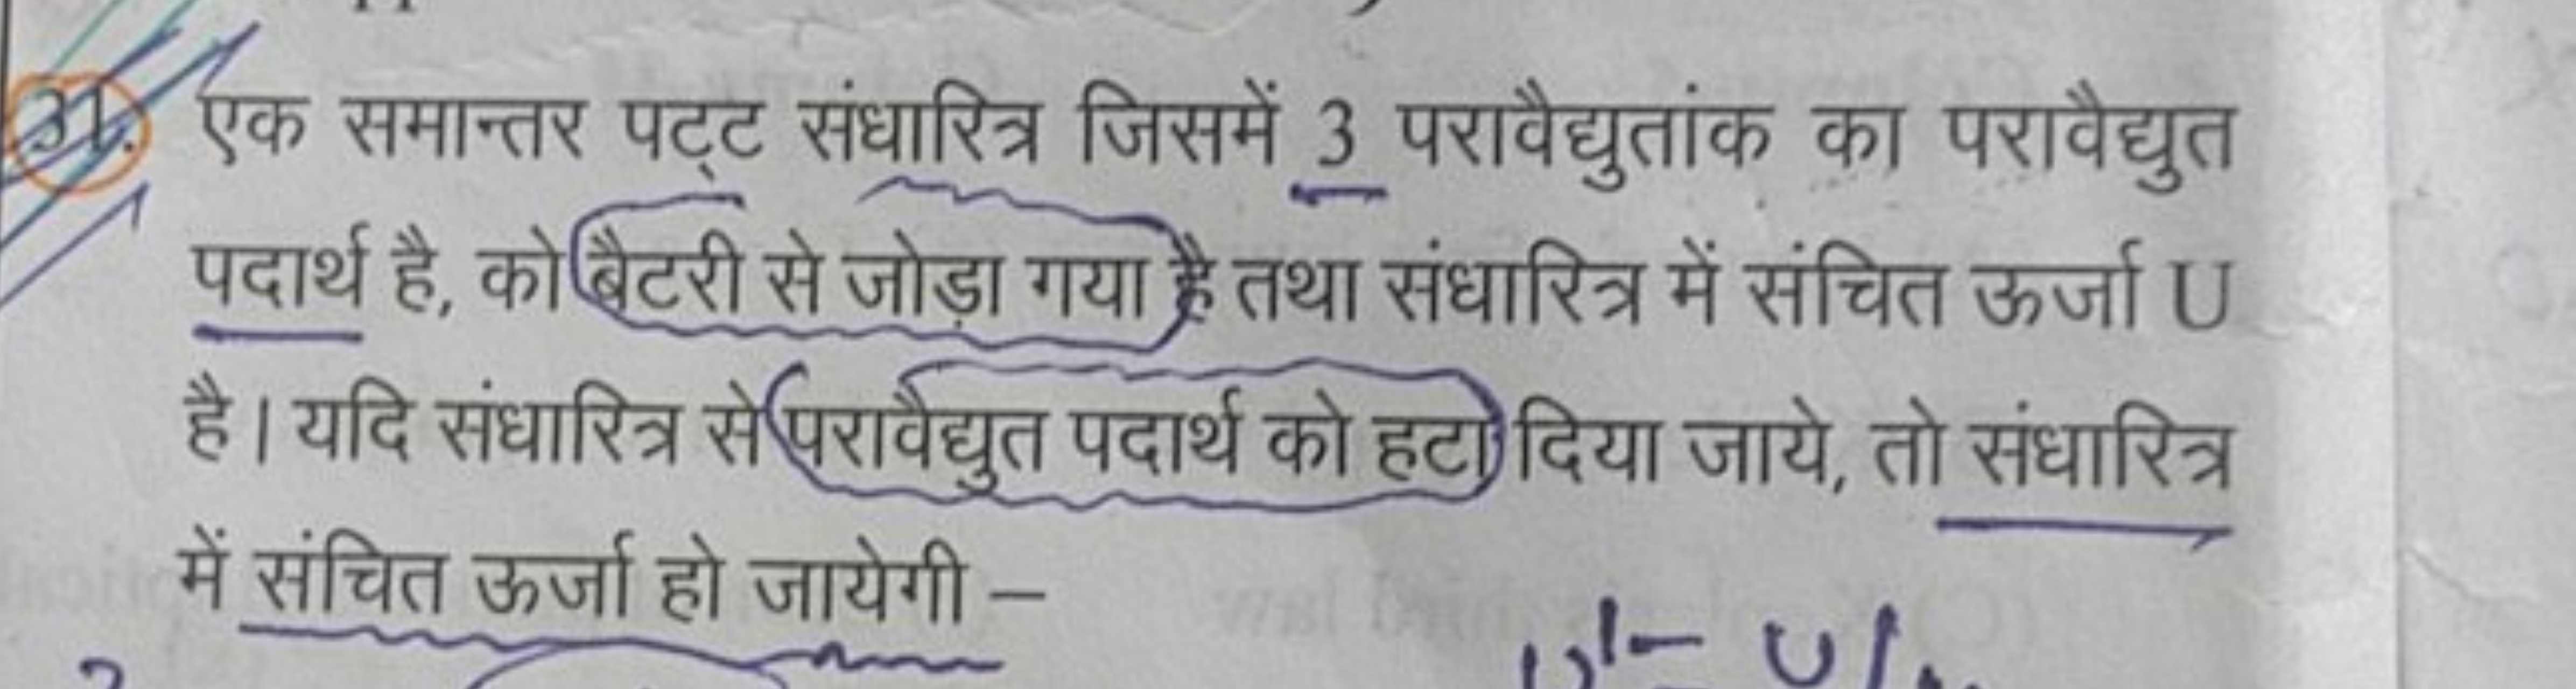 31. एक समान्तर पट्ट संधारित्र जिसमें 3 परावैद्युतांक का परावैद्युत
पदार्थ है, को बैटरी से जोड़ा गया है तथा संधारित्र में संचित ऊर्जा U
है। यदि संधारित्र से परावैद्युत पदार्थ को हटा दिया जाये, तो संधारित्र
में संचित ऊर्जा हो जायेगी –